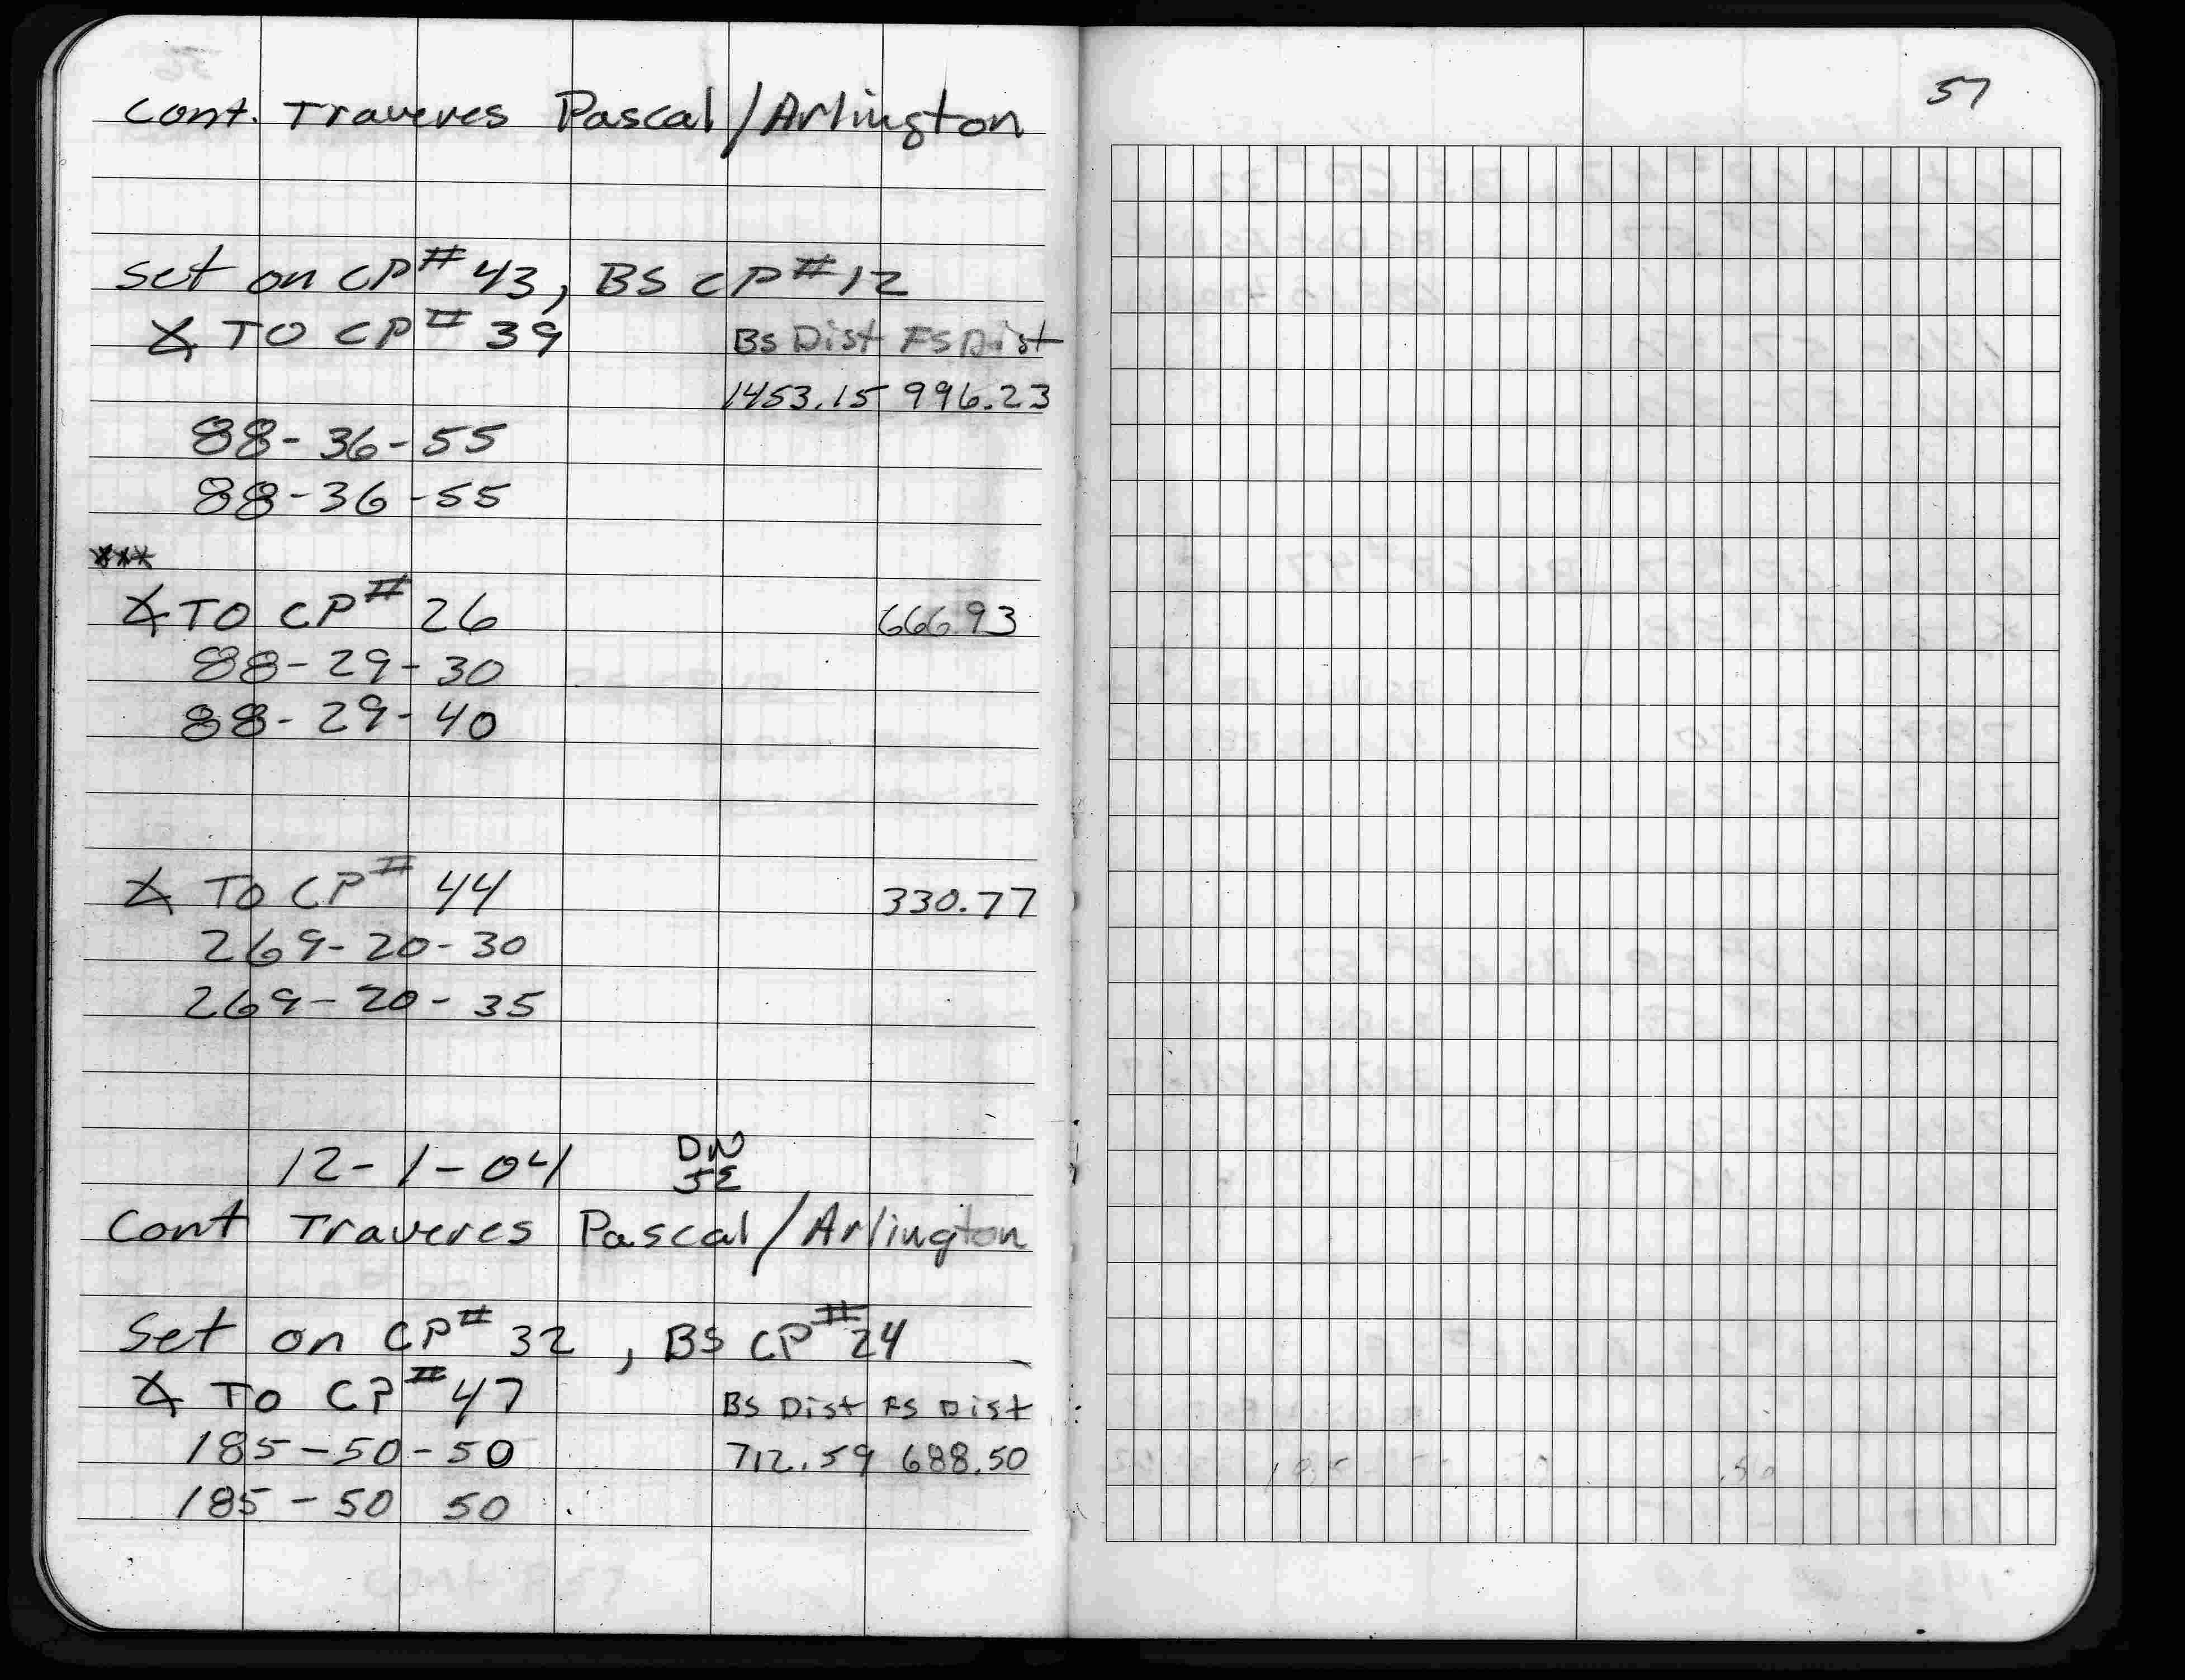 Cont. Traveres Pascal/Arlington
Set on CP# 43, BS CP# 12
∡ TO CP# 39 BS Dist FS Dist
1453.15 996.23
88-36-55
88-36-55
***
∡ TO CP# 26 666.93
88-29-30
88-29-40
∡ TO CP# 44 330.77
269-20-30
269-20-35
12-1-04 DN
JE
Cont Traveres Pascal/Arlington
Set on CP# 32, BS CP# 24
∡ TO CP# 47 BS Dist FS Dist
185-50-50 712.59 688.50
185-50 50
57